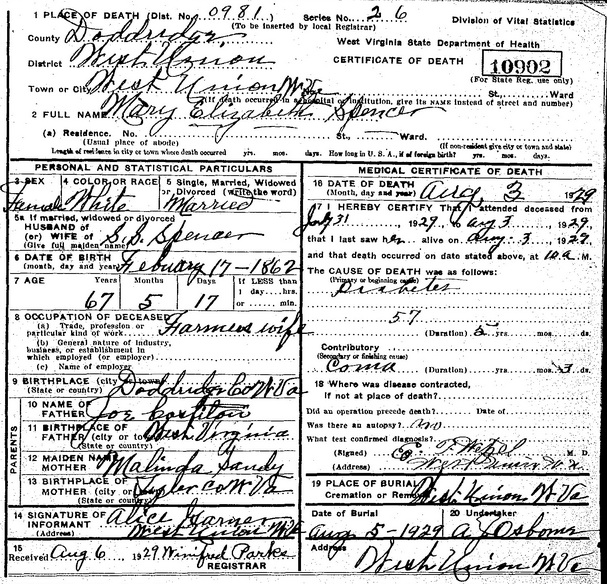 1 PLACE OF DEATH (Dist. No. 0981 Series No. 26 Division of Vital Statistics
(To be inserted by local Registrar)
County Doddridge West Virginia State Department of Health
District West Union CERTIFICATE OF DEATH 10902
(For State Reg. use only)
Town or City West Union W Va St., Ward
(If death occurred in a hospital or institution, give its NAME instead of street and number)
2 FULL NAME Mary Elizabeth Spencer
(a) Residence. No. St., Ward.
(Usual place of abode) (If non-resident give city or town and state)
Length of residence in city or town where death occurred yrs. mos. days. How long in U. S. A., if of foreign birth? yrs. mos. days
PERSONAL AND STATISTICAL PARTICULARS
3 SEX 4 COLOR OR RACE 5 Single, Married, Widowed
or Divorced (write the word)
Female White Married
5a If married, widowed or divorced
HUSBAND of
(or) WIFE of S. S. Spencer
(Give full maiden name)
6 DATE OF BIRTH
(month, day and year) Febuary 17-1862
7 AGE Years Months Days If LESS than
1 day....hrs.
or....min.
67 5 17
8 OCCUPATION OF DECEASED
(a) Trade, profession or
particular kind of work Farmers wife
(b) General nature of industry,
business, or establishment in
which employed (or employer)
(c) Name of employer
9 BIRTHPLACE (city or town) Doddridge Co W Va
(State or country)
PARENTS
10 NAME OF
FATHER Joe
11 BIRTHPLACE OF
FATHER (city or town) West Virginia
(State or country)
12 MAIDEN NAME
MOTHER Malinda Gandy
13 BIRTHPLACE OF
MOTHER (city or town) Tyler Co W Va
(State or country)
14 SIGNATURE OF
INFORMANT Alice Garner
West Union W Va
15
Received Aug 6 1929 Winifred Parks
REGISTRAR
MEDICAL CERTIFICATE OF DEATH
16 DATE OF DEATH Aug 3 1929
(Month, day and year)
17 I HEREBY CERTIFY That I attended deceased from
July 31 1929, to Aug 3 1929,
that I last saw her alive on Aug. 3 1929
and that death occurred on date stated above, at 10 a M.
The CAUSE OF DEATH was as follows:
(Primary or beginning cause)
Diabetes
57
(Duration) 5 yrs. mos. ds.
Contributory
(Secondary or finishing cause)
Coma (Duration) yrs. mos. 3 ds.
18 Where was disease contracted,
if not at place of death?
Did an operation precede death? Date of
Was there an autopsy? no
What test confirmed diagnosis?
(Signed) M. D.
(Address) West Union W. V.
19 PLACE OF BURIAL
Cremation or Removal West Union W Va
Date of Burial 20 Undertaker
Aug 5-1929 A J Osborne
Address West Union W Va